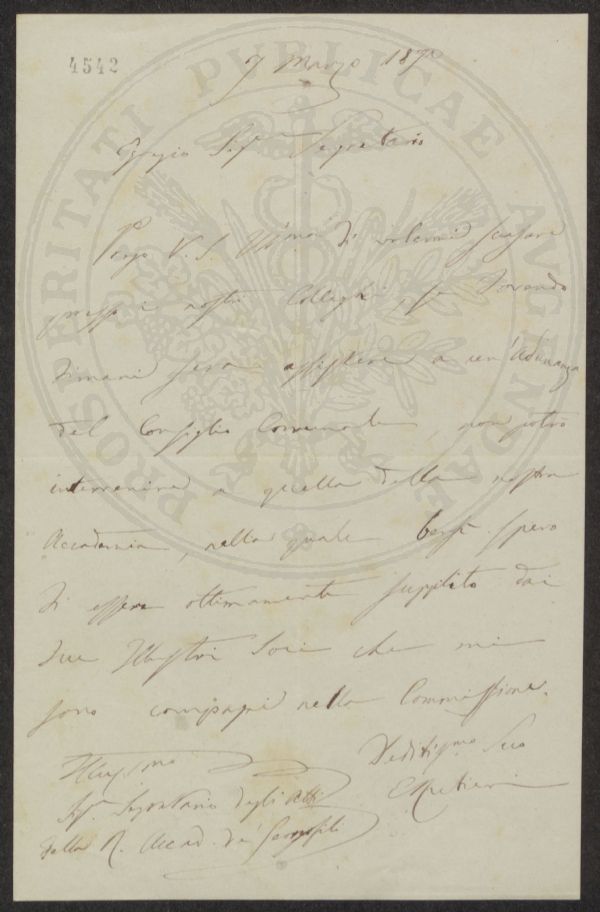 4542
7 Marzo 1870
Egregio Sig. Segretario
Prego V. S. Ill.ma di volermi scusare
presso i nostri Colleghi, se dovendo
dimani sera assistere a un'Adunanza
del Consiglio Comunale, non potrò
intervenire a quella della nostra
Accademia, nella quale spero
di essere ottimamente supplito dai
due Illustri Soci che mi
sono compagni nella Commissione.
Devotiss.mo Suo
Sig. Segretario degli Atti
della R. Accad. de' Georgofili
PROSPERITATI PVBLICAE AVGENDAE